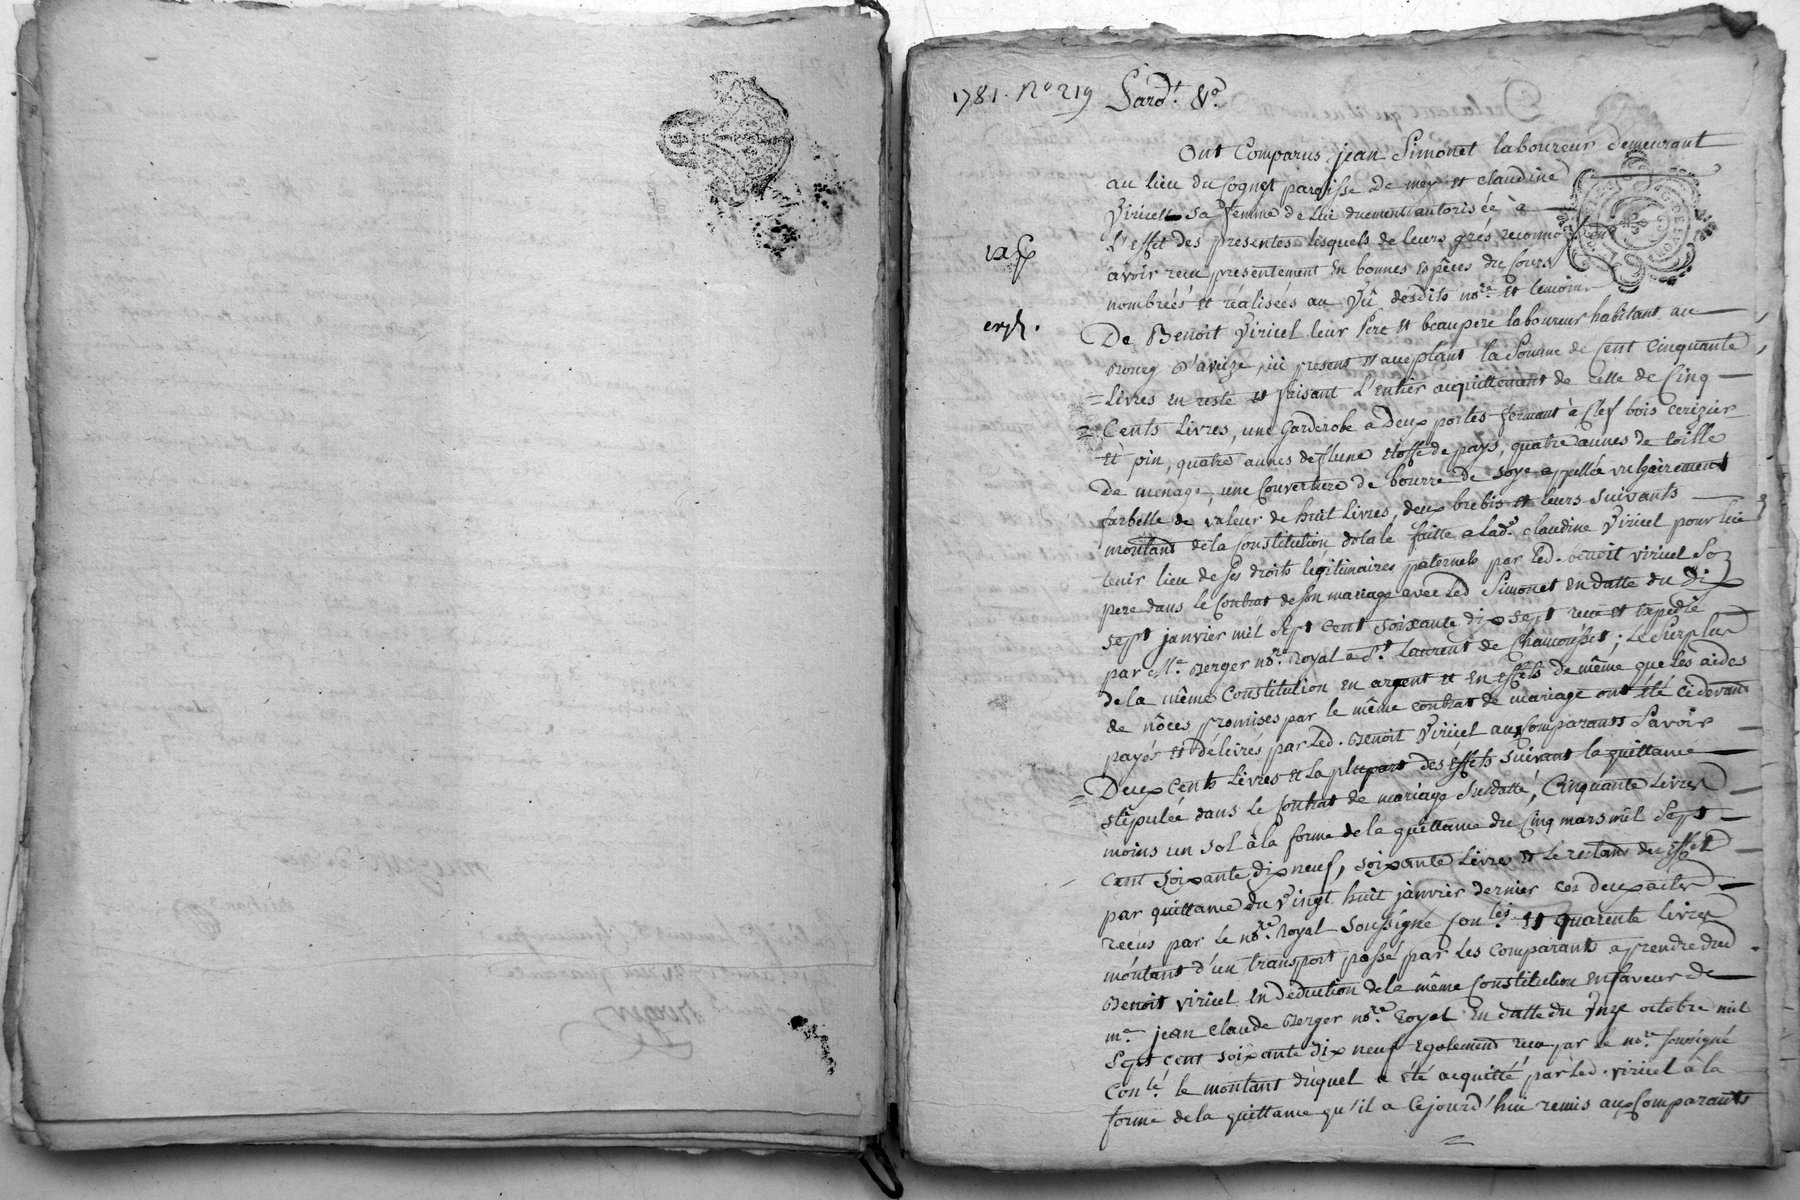 1781. No 219 Pard.t &a.
Ont Comparus jean Simonet laboureur demeurant
au lieu du Coquet paroisse de meyx et claudine
Viricel sa femme de lui duement autorisée à
L'effet des presentes lesquels de leurs grès reconnoissent
avoir recu presentement en bonnes espèces du Cours
nombréés et réalisées au Vû desdits no.re et temoins
De Benoit Viricel leur Pere et beaupere laboureur habitant au
Bourg D'aveize, ici present et acceptant la Somme de Cent Cinquante
= Livres en reste et faisant L'entier acquittement de celle de Cinq
= Cents Livres, une Garderobe a Deux portes fermant à Clef bois cerizier
et pin, quatre aunes de étoffe de pays, quatre aunes de toille
De menage, une Couverture de bourre de soye appellée vulgairement
farbelle de valeur de huit Livres, deux brebis et leurs Suivants
montant de la Constitution dotale faitte a lad.e claudine Viricel pour lui
tenir lieu de ses droits légitimaires paternels par led. benoit viricel So
pere dans le Contrat de son mariage avec led Simonet en datte du Dix
sept janvier mil Sept cent soixante dix sept recu et expedié
par M.e Berger no.re Royal a S.t Laurent de Chamousset; Le Surplus
de la même Constitution en argent et en effets de même que les aides
de nôces promises par le même contrat de mariage ont été cidevant
payés et délivrés par Led. Benoit Viricel aux Comparants Savoir
= Deux Cents Livres et la plupart des éffets suivant la quittance
stipulée dans Le Contrat de mariage Susdatté, Cinquante Livres
moins un Sol à la forme de la quittance du Cinq mars mil Sept
Cent soixante dix neuf, soixante Livres et Le restant des Effets
par quittance du Vingt huit janvier dernier ces deux actes
recus par le no.re Royal Soussigné Con.lés et quarente livres
montant d'un transport passé par Les Comparants a prendre dud
Benoit viricel en déduction de la même Constitution en faveur de
m.e jean Claude Berger no.re Royal en datte du Unze octobre mil
Sept cent soixante dix neuf Egalement recu par le no.re Soussigné
Con.lé le montant duquel a été acquitté par Led. viricel à la
forme de la quittance qu'il a Cejourd'hui remis aux Comparants